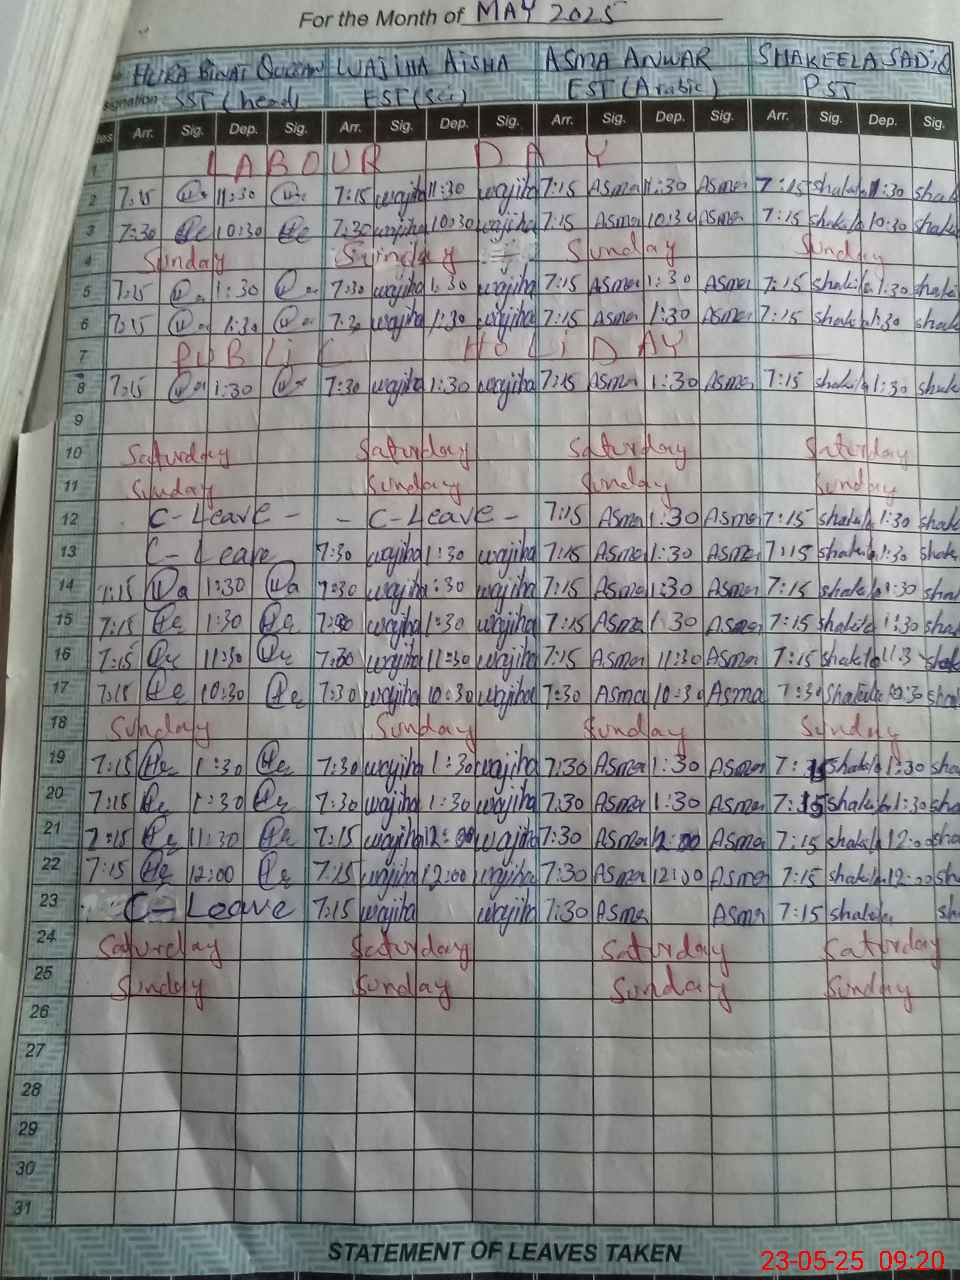 For the Month of MAY 2025
WAJIHA AISHA ASMA ANWAR SHAKEELA SADIQ
signation: SST (head) EST (Sci) EST (Arabic) PST
Arr. Sig. Dep. Sig. Arr. Sig. Dep. Sig. Arr. Sig. Dep. Sig. Arr. Sig. Dep. Sig.
1 LABOUR DAY
2 7:15 11:30 7:15 wajiha 11:30 wajiha 7:15 Asma 11:30 Asma 7:15 shakila 11:30 shak
3 7:30 10:30 7:30 wajiha 10:30 wajiha 7:15 Asma 10:30 Asma 7:15 shakila 10:30 shak
4 Sunday Sunday Sunday Sunday
5 7:15 1:30 7:30 wajiha 1:30 wajiha 7:15 Asma 1:30 Asma 7:15 shakila 1:30 shak
6 7:15 1:30 7:30 wajiha 1:30 wajiha 7:15 Asma 1:30 Asma 7:15 shakila 1:30 shak
7 PUBLiC HOLiDAY
8 7:15 1:30 7:30 wajiha 1:30 wajiha 7:15 Asma 1:30 Asma 7:15 shakila 1:30 shak
9
10 Saturday Saturday Saturday Saterday
11 Sunday Sunday Sunday Sunday
12 C-Leave - - C-Leave - 7:15 Asma 1:30 Asma 7:15 shakila 1:30 shak
13 C-Leave 7:30 wajiha 1:30 wajiha 7:15 Asma 1:30 Asma 7:15 shakila 1:30 shak
14 7:15 1:30 7:30 wajiha 1:30 wajiha 7:15 Asma 1:30 Asma 7:15 shakila 1:30 shak
15 7:15 1:30 wajiha 1:30 wajiha 7:15 Asma 1:30 Asma 7:15 shakila 1:30 shak
16 7:15 11:30 7:30 wajiha 11:30 wajiha 7:15 Asma 11:30 Asma 7:15 shakila 11:3 shak
17 7:15 10:30 7:30 wajiha 10:30 wajiha 7:30 Asma 10:30 Asma 7:30 shakila 10:30 shak
18 Sunday Sunday Sunday Sunday
19 7:15 1:30 7:30 wajiha 1:30 wajiha 7:30 Asma 1:30 Asma 7:15 shakila 1:30 sha
20 7:15 1:30 7:30 wajiha 1:30 wajiha 7:30 Asma 1:30 Asma 7:15 shakila 1:30 sha
21 7:15 11:30 7:15 wajiha 12:00 wajiha 7:30 Asma 12:00 Asma 7:15 shakila 12:00 sha
22 7:15 12:00 7:15 wajiha 12:00 wajiha 7:30 Asma 12:00 Asma 7:15 shakila 12:00 sh
23 C-Leave 7:15 wajiha wajiha 7:30 Asma Asma 7:15 shakila sh
24 Saturday Saturday Saturday Saturday
25 Sunday Sunday Sunday Sunday
26
27
28
29
30
31
STATEMENT OF LEAVES TAKEN
23-05-25 09:20